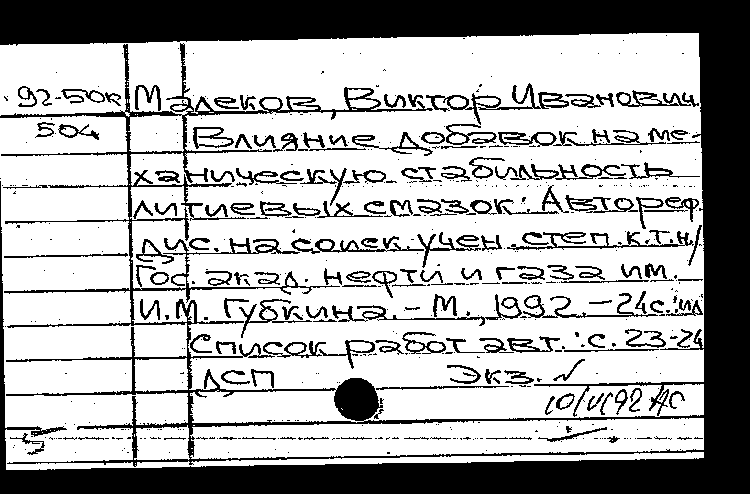 92-50к Малеков, Виктор Иванович.
504 Влияние добавок на ме-
ханическую стабильность
литиевых смазок: Автореф.
дис. на соиск. учен. степ. к.т.н/
Гос. акад. нефти и газа им.
И.М. Губкина. – М., 1992. – 24с.:ил
Список работ авт.: с. 23-24
ДСП Экз. ✓
10/VI92 АС
5